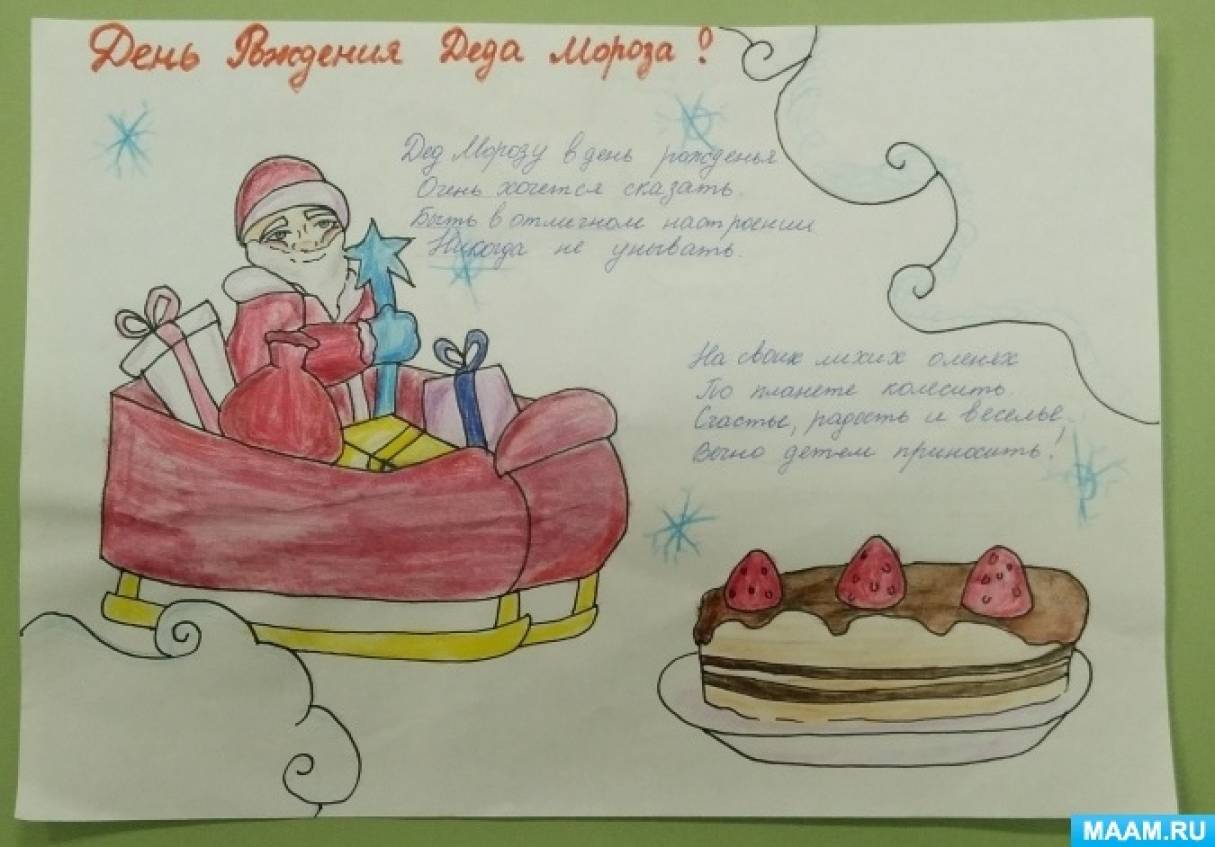 День Рождения Деда Мороза!
Дед Морозу в день рожденья
Очень хочется сказать.
Быть в отличном настроении
Никогда не унывать.
На своих лихих оленях
По планете колесить.
Счастье, радость и веселье
Вечно детям приносить!
MAAM.RU